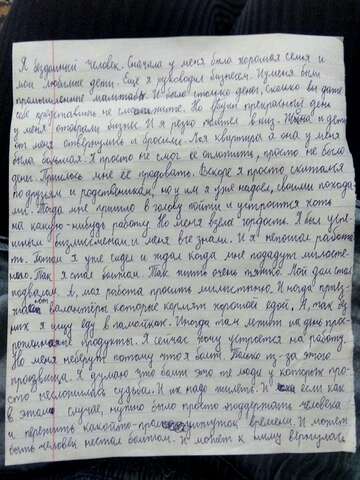 Я бездомный человек. Сначала у меня была хорошая семья и
мои любимые дети. Ещё я руководил бизнесом. И у меня были
промышленные масштабы. И было столько денег, сколько вы даже
себе представить не сможете. Но в один прекрасный день
у меня отобрали бизнес. И я резко полетел вниз. Жена и дети
от меня отвернулись и бросили. Моя квартира а она у меня
была большая. Я просто не смог её оплатить, просто не было
денег. Пришлось мне её продавать. Вскоре я просто скитался
по друзьям и родственникам, но и им я уже надоел, своими похода
ми. Тогда мне пришло в голову пойти и устроится хоть
на какую-нибудь работу. Но меня взела гордость. Я был успе
шным бизнесменом и меня все знали. И я непошел работа
ть. Потом я уже сидел и ждал когда мне подадут милосте-
ню. Так я стал бомжом. Так жить очень тяжко. Мой дом стал
подвалом. А, моя работа просить милостыню. И когда приез-
жают валонтёры которые кормят хорошой едой. А, так бы
них я ищу еду в помойках. Иногда там лежит не дно прос-
роченные продукты. Я сейчас хочу устроится на работу.
Но меня неберут потому что я бомж. Только из-за этого
прозвища. Я думаю что бомж это те люди у которых про-
сто неслошилась судьба. И их надо жилеть. И если как
в этом случае, нужно было просто поддержать человека
и пережить какойто промижуток времени. И может
быть человек нестал бомжом. И может к нему вернулась